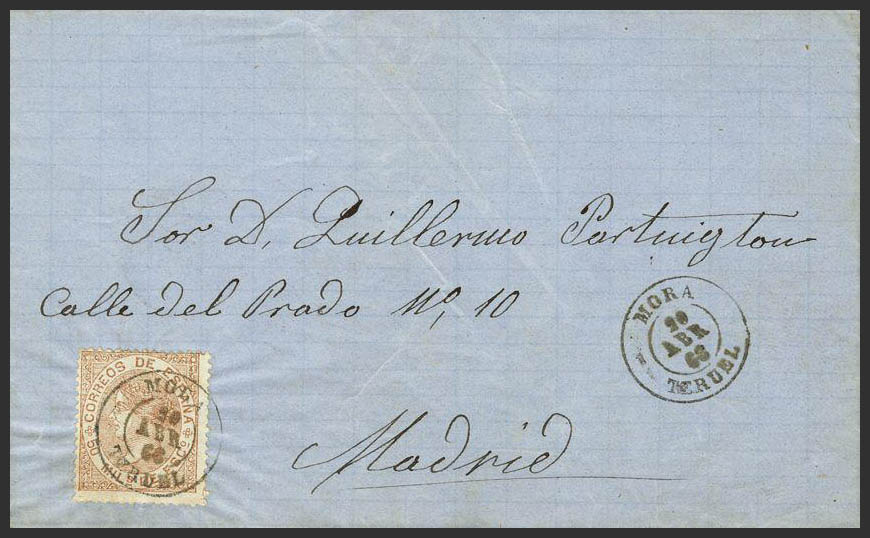 Sor D. Guillermo Partington
Calle del Prado Nº, 10
MORA
20
ABR
68
TERUEL
CORREOS DE ESPAÑA
50 MIL S DE ESCº
MORA
20
ABR
68
TERUEL
Madrid